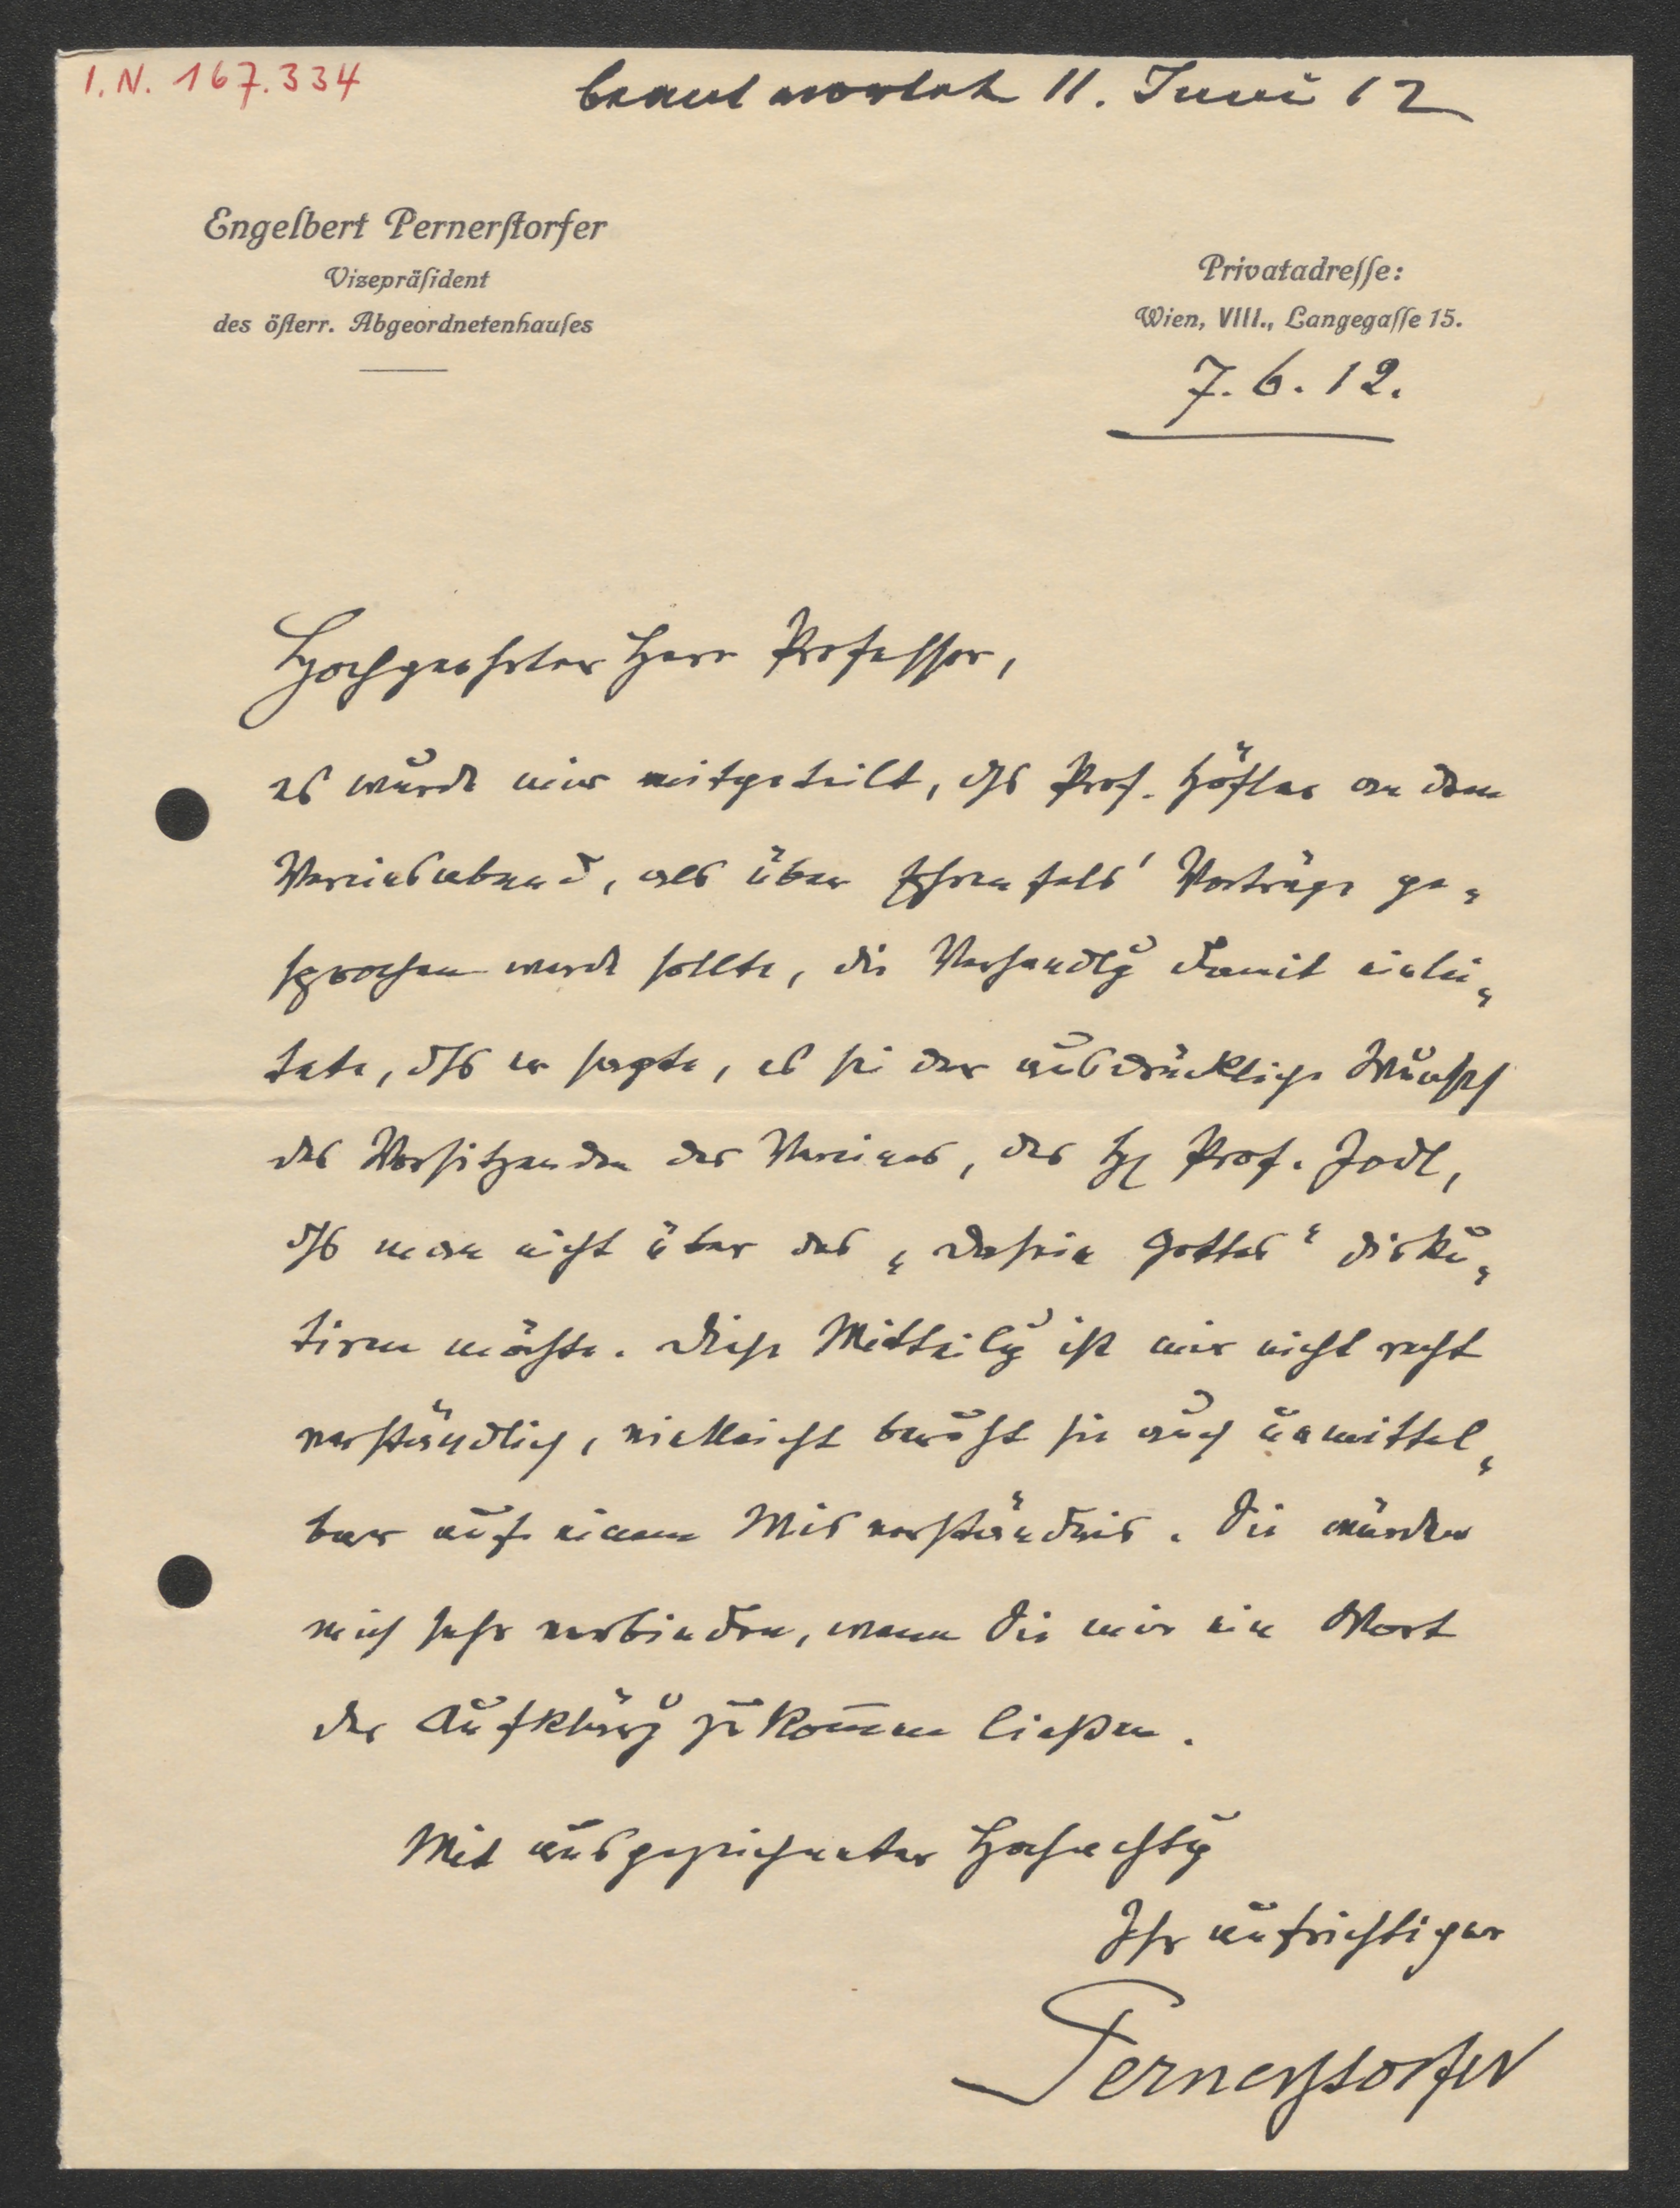 I. N. 167.334
beantwortet 11. Juni 12
Engelbert Pernerſtorfer
Vizepräſident
des öſterr. Abgeordnetenhauſes
Privatadreſſe:
Wien, VIII., Langegaſſe 15.
7. 6. 12.
Hochgeehrter Herr Professor,
es wurde mir mitgeteilt, dss Prof. Höfler an dem
Vereinsabend, als über Ehrenfels' Vorträge ge„
sprochen werde sollte, die Verhandlg damit einlei„
tete, dss er sagte, es sei der ausdrückliche Wunsch
des Vorsitzenden des Vereines, des H Prof. Jodl,
dss man nicht über das „Dasein Gottes“ disku„
tiren möchte. Diese Mitteilg ist mir nicht recht
verständlich, vielleicht beruht sie auch unmittel„
bar auf einem Misverständnis. Sie würden
mich sehr verbinden, wenn Sie mir ein Wort
der Aufklärg zukom̄en ließen.
Mit ausgezeichneter Hochachtg
Ihr aufrichtiger
Pernerstorfer